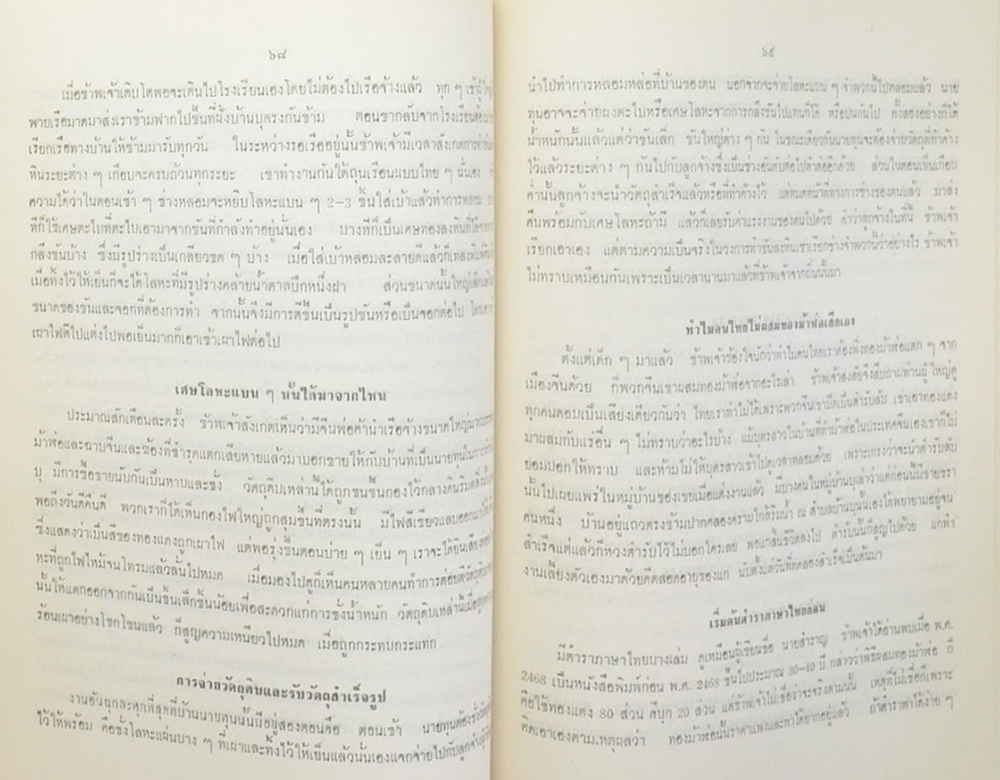 ๖๘
เมื่อข้าพเจ้าเติบโตพอจะเดินไปโรงเรียนเองโดยไม่ต้องไปเรือจ้างแล้ว ทุก ๆ เช้า
พายเรือมาดมาส่งเราข้ามฟากไปขึ้นที่ฝั่งบ้านบุตรงกันข้าม ตอนขากลับจากโรงเรียน
เรียกเรือทางบ้านให้ข้ามมารับทุกวัน ในระหว่างรอเรืออยู่นั้นข้าพเจ้ามีเวลาสังเกตการทำขัน
หินระยะต่าง ๆ เกือบจะครบถ้วนทุกระยะ เขาทำงานกันใต้ถุนเรือนแบบไทย ๆ นั้นเอง
ความได้ว่าในตอนเช้า ๆ ช่างหลอมจะหยิบโลหะแบน ๆ 2-3 ชิ้นใส่เบ้าแล้วทำการหลอม
ที่ก็ใช้เศษตะไบที่ตะไบเอามาจากขันที่กำลังทำอยู่นั้นเอง บางทีก็เป็นเศษทองลงหินที่ได้จาก
กลึงขันบ้าง ซึ่งมีรูปร่างเป็นเกลียวขด ๆ บ้าง เมื่อใส่เบ้าหลอมละลายดีแล้วก็เท
เมื่อทิ้งไว้ให้เย็นก็จะได้โลหะที่มีรูปร่างคล้ายน้ำตาลปึกหนึ่งฝา ส่วนขนาดนั้นใหญ่เล็ก
ขนาดของขันและจอกที่ต้องการทำ จากนั้นจึงมีการตีขึ้นเป็นรูปขันหรือเป็นจอกต่อไป
เผาไฟตีไปแต่งไปพอเย็นมากก็เอาเข้าเผาไฟต่อไป
เศษโลหะแบน ๆ นั้นได้มาจากไหน
ประมาณสักเดือนละครั้ง ข้าพเจ้าสังเกตเห็นว่ามีจีนพ่อค้านำเรือจ้างขนาดใหญ่มา
ม้าพ่อและฉาบจีนและฆ้องที่ชำรุดแตกเสียหายแล้วมาบอกขายให้กับบ้านที่เป็นนายทุนในการ
บุ มีการซื้อขายนับกันเป็นหาบและชั่ง วัตถุดิบเหล่านี้ได้ถูกขนขึ้นกองไว้กลางคันริม
พอถึงวันดีคืนดี พวกเราก็ได้เห็นกองไฟใหญ่ถูกสุมขึ้นที่ตรงนั้น มีไฟสีเขียวแลบออกมา
ซึ่งแสดงว่าเป็นสีของทองแดงถูกเผาไฟ แต่พอรุ่งขึ้นตอนบ่าย ๆ เย็น ๆ เราจะได้ยินเสียง
หะที่ถูกไฟไหม้จนโทรมแล้วลั่นไปหมด เมื่อมองไปดูก็เห็นคนหลายคนทำการต่อยตีวัตถุดิบ
นั้นให้แตกออกจากกันเป็นชิ้นเล็กชิ้นน้อยเพื่อสะดวกแก่การชั่งน้ำหนัก วัตถุดิบเหล่านี้เมื่อถูก
ร้อนเผาอย่างโชกโชนแล้ว ก็สูญความเหนียวไปหมด เมื่อถูกกระทบกระแทก
การจ่ายวัตถุดิบและรับวัตถุสำเร็จรูป
งานอันฤกละหุกที่สุดที่บ้านนายทุนนั้นมีอยู่สองตอนคือ ตอนเช้า นายทุนต้องชั่ง
ไว้ให้พร้อม คือชั่งโลหะแผ่นบาง ๆ ที่เผาและทิ้งไว้ให้เย็นแล้วนั้นเองแจกจ่ายไปกับลูกจ้าง
๖๙
นำไปทำการหลอมหล่อที่บ้านของตน นอกจากจะจ่ายโลหะแบน ๆ จำพวกนี้ไปหลอมแล้ว นาย
ทุนอาจจะจ่ายผงตะไบหรือเศษโลหะจากการกลึงขันไปแทนก็ได้ หรือปนกันไป ทั้งสองอย่างก็ได้
น้ำหนักนั้นแล้วแต่ว่าขันเล็ก ขันใหญ่ต่าง ๆ กัน ในขณะเดียวกันนายทุนจะต้องจ่ายวัตถุที่ทำค้าง
ไว้แล้วระยะต่าง ๆ กันไปกับลูกจ้างซึ่งเป็นช่างอันดับต่อไปทำต่ออีกด้วย ส่วนในตอนเย็นเกือบ
ค่ำนั้นลูกจ้างจะนำวัตถุสำเร็จแล้วหรือที่ทำค้างไว้ แต่หมดหน้าที่ทางการช่างของตนแล้ว มาส่ง
คืนพร้อมกับเศษโลหะถ้ามี แล้วก็เลยรับค่าแรงงานของตนไปด้วย คำว่าลูกจ้างในที่นี้ ข้าพเจ้า
เรียกเอาเอง แต่ตามความเป็นจริงในวงการทำขันลงหินเขาเรียกช่างจำพวกนี้ว่าอย่างไร ข้าพเจ้า
ไม่ทราบเหมือนกันเพราะเป็นเวลานานมาแล้วที่ข้าพเจ้าจากถิ่นนั้นมา
ทำไมคนไทยไม่ผสมทองม้าพ่อเสียเอง
ตั้งแต่เด็ก ๆ มาแล้ว ข้าพเจ้าข้องใจนักว่าทำไมคนไทยเราต้องพึ่งทองม้าพ่อแตก ๆ จาก
เมืองจีนด้วย ก็พวกจีนเขาผสมทองม้าพ่อจากอะไรเล่า ข้าพเจ้าสงสัยจึงสืบถามท่านผู้ใหญ่ดู
ทุกคนตอบเป็นเสียงเดียวกันว่า ไทยเราทำไม่ได้เพราะพวกจีนเขาปิดเป็นตำรับลับ เขาเอาทองแดง
มาผสมกับแร่อื่น ๆ ไม่ทราบว่าอะไรบ้าง แม้บุตรสาวในบ้านที่ทำม้าพ่อในประเทศจีนเองเขาก็ไม่
ยอมบอกให้ทราบ และห้ามไม่ให้บุตรสาวเข้าไปดูเวลาหลอมด้วย เพราะเกรงว่าจะนำตำรับลับ
นั้นไปเผยแพร่ในหมู่บ้านของเขยเมื่อแต่งงานแล้ว มีบางคนในหมู่บ้านบุเล่าว่าแต่ก่อนนี้มีชายชรา
คนหนึ่ง บ้านอยู่แถวตรงข้ามปากคลองครามใกล้ริมน้ำ ณ ตำบลบ้านบุนั้นเองได้พยายามอยู่จน
สำเร็จแต่แล้วก็หวงตำรับไว้ไม่บอกใครเลย พอแกสิ้นชีวิตลงไป ตำรับนั้นก็สูญไปด้วย แกทำ
งานเลี้ยงตัวเองมาด้วยดีตลอดอายุของแก นับตั้งแต่วันที่ทดลองสำเร็จเป็นต้นมา
เริ่มค้นตำราภาษาไทยก่อน
มีตำราภาษาไทยบางเล่ม ดูเหมือนผู้เขียนชื่อ นายสำราญ ข้าพเจ้าได้อ่านพบเมื่อ พ.ศ.
2468 เป็นหนังสือพิมพ์ก่อน พ.ศ. 2468 ขึ้นไปประมาณ 30-40 ปี กล่าวว่าพิธีผสมทองม้าพ่อ ก็
คือใช้ทองแดง 80 ส่วน ดีบุก 20 ส่วน แต่ข้าพเจ้าไม่เชื่อว่าจะจริงตามนั้น เหตุที่ไม่เชื่อก็เพราะ
คิดเอาเองตามเหตุผลว่า ทองม้าพ่อนั้นราคาแพงและหาได้ยากอยู่แล้ว ถ้าตำราหาได้ง่าย ๆ